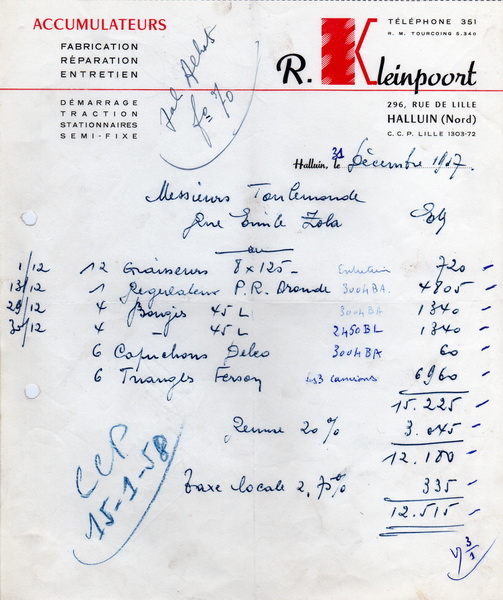 ACCUMULATEURS
FABRICATION
RÉPARATION
ENTRETIEN
DÉMARRAGE
TRACTION
STATIONNAIRES
SEMI-FIXE
R. Kleinpoort
TÉLÉPHONE 351
R. M. TOURCOING 5.340
296, RUE DE LILLE
HALLUIN (Nord)
C. C. P. LILLE 1303-72
Halluin, le 31 Décembre 1957.
Messieurs Tonlemonde
Rue Emile Zola
1/12 12 Graisseurs 8 x 125 - Entretien 720
13/12 1 Regulateur P.R. Dronde 3004BA 4805
29/12 4 Bougies 45 L 3004BA 1340
30/12 4 45 L 2450BL 1340
6 Capuchons Delco 3004BA 60
6 Triangles Ferson les 3 camions 6960
15.225
Remise 20 % 3.045
12.180
Taxe locale 2,75% 335
12.515
CCP
15-1-58